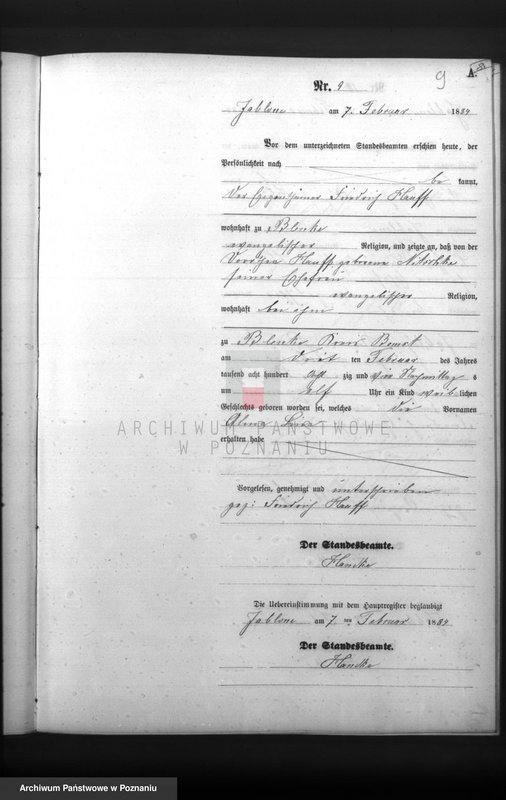 9
A.
Nr. 9
Jablone am 7. Februar 1884
Vor dem unterzeichneten Standesbeamten erschien heute, der
Persönlichkeit nach
be kannt,
der Eigenthümer Friedrich Hauff
wohnhaft zu Blenke
evangelischer Religion, und zeigte an, daß von der
Hauff geborene Nitschke
seiner Ehefrau
evangelischer Religion,
wohnhaft bei ihm
zu Blenke Kreis Bomst
am drit ten Februar des Jahres
tausend acht hundert acht zig und vier Nachmittag s
um elf Uhr ein Kind weib lichen
Geschlechts geboren worden sei, welches die Vornamen
erhalten habe
Vorgelesen, genehmigt und unterschrieben
gez: Friedrich Hauff
Der Standesbeamte.
Hancke
Die Uebereinstimmung mit dem Hauptregister beglaubigt
Jablone am 7 ten Februar 1884
Der Standesbeamte.
Hancke
ARCHIWUM PAŃSTWOWE
W POZNANIU
Archiwum Państwowe w Poznaniu